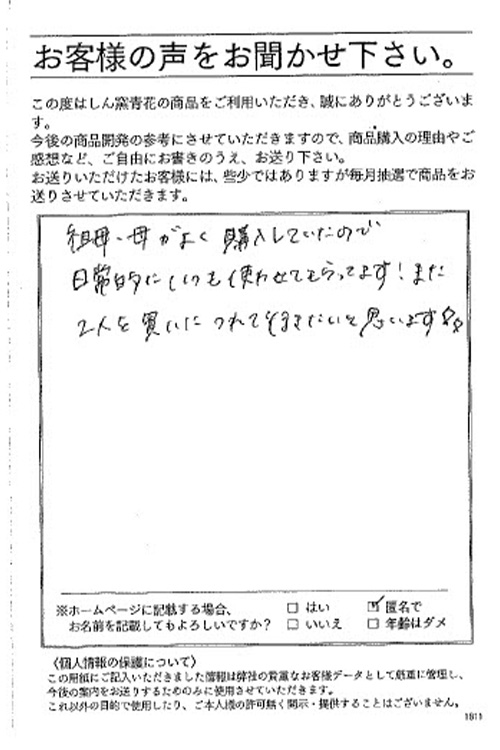 お客様の声をお聞かせ下さい。
この度はしん窯青花の商品をご利用いただき、誠にありがとうございま
す。
今後の商品開発の参考にさせていただきますので、商品購入の理由やご
感想など、ご自由にお書きのうえ、お送り下さい。
お送りいただけたお客様には、些少ではありますが毎月抽選で商品をお
送りさせていただきます。
祖母・母がよく購入していたので
日常的にいつも使わせてもらってます！また
2人を買いにつれて行きたいと思います☆☆
※ホームページに記載する場合、 □ はい ☑ 匿名で
お名前を記載してもよろしいですか？ □ いいえ □ 年齢はダメ
〈個人情報の保護について〉
この用紙にご記入いただきました情報は弊社の貴重なお客様データとして厳重に管理し、
今後の案内をお送りするためのみに使用させていただきます。
これ以外の目的で使用したり、ご本人様の許可無く開示・提供することはございません。
1811